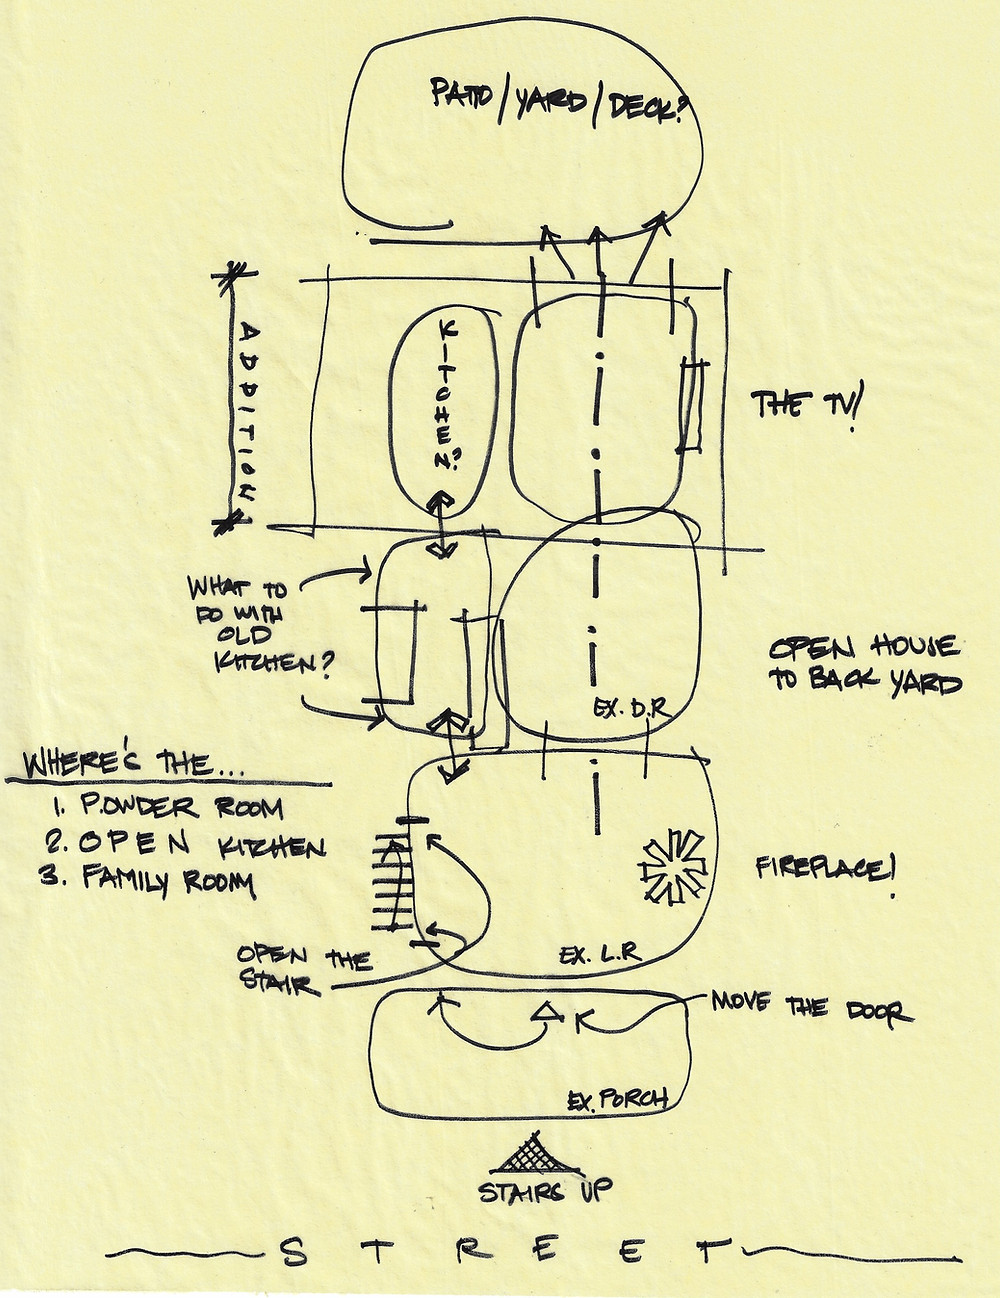 PATIO/YARD/DECK?
ADDITION
KITCHEN?
THE TV!
WHAT TO
DO WITH
OLD
KITCHEN?
OPEN HOUSE
TO BACK YARD
EX. D.R
WHERE'S THE...
1. POWDER ROOM
2. OPEN KITCHEN
3. FAMILY ROOM
FIREPLACE!
OPEN THE
STAIR
EX. L.R
MOVE THE DOOR
EX. PORCH
STAIRS UP
STREET